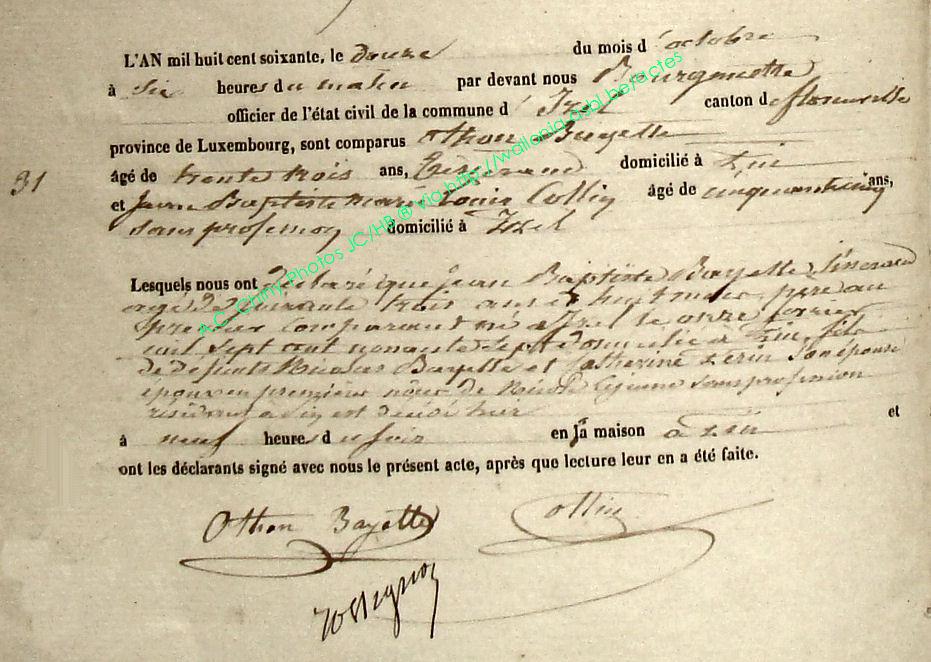 L'AN mil huit cent soixante, le douze du mois d'octobre
à six heures du matin par devant nous Bourgmestre
officier de l'état civil de la commune d'Izel canton de florenville
province de Luxembourg, sont comparus Othon Bayette
31
âgé de trente trois ans, Tisserand domicilié à
et Jean Baptiste Marie Louis Collin âgé de cinquante cinq ans,
sans profession domicilié à Izel
Lesquels nous ont déclaré que Jean Baptiste Bayette, Tisserand
agé de soixante trois ans et huit mois, père au
premier comparant né à Izel le onze février
mil sept cent nonante sept domicilié à fils
de défunts Nicolas Bayette et Catherine son épouse
époux en premières nôces de sans profession
résidant à est décédé hier
à neuf heures du soir en sa maison à et
ont les déclarants signé avec nous le présent acte, après que lecture leur en a été faite.
Othon Bayette Collin
A.C. Chiny Photos JC/HB @ via http://wallonia-asbl.be/actes